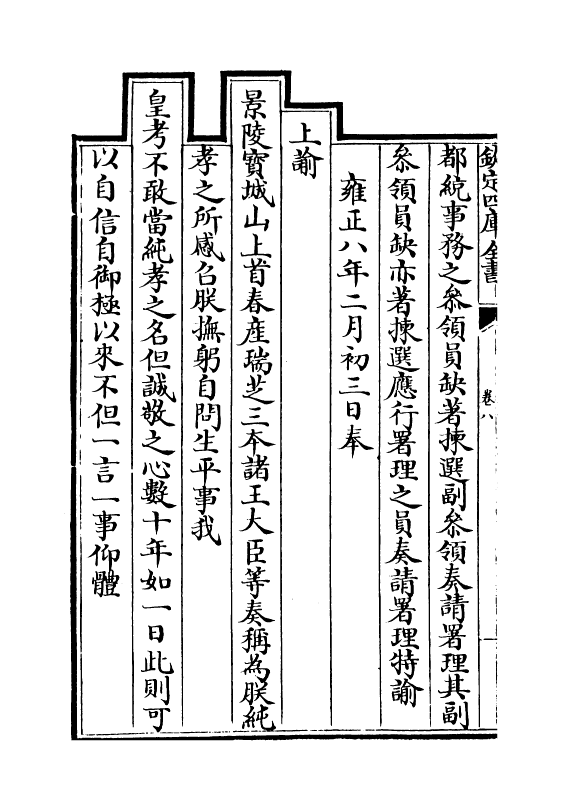 欽定四庫全書
卷八
都統事務之叅領員缺著揀選副叅領奏請署理其副
叅領員缺亦著揀選應行署理之員奏請署理特諭
雍正八年二月初三日奉
上諭
景陵寶城山上首春產瑞芝三本諸王大臣等奏稱為朕純
孝之所感召朕撫躬自問生平事我
皇考不敢當純孝之名但誠敬之心數十年如一日此則可
以自信自御極以來不但一言一事仰體